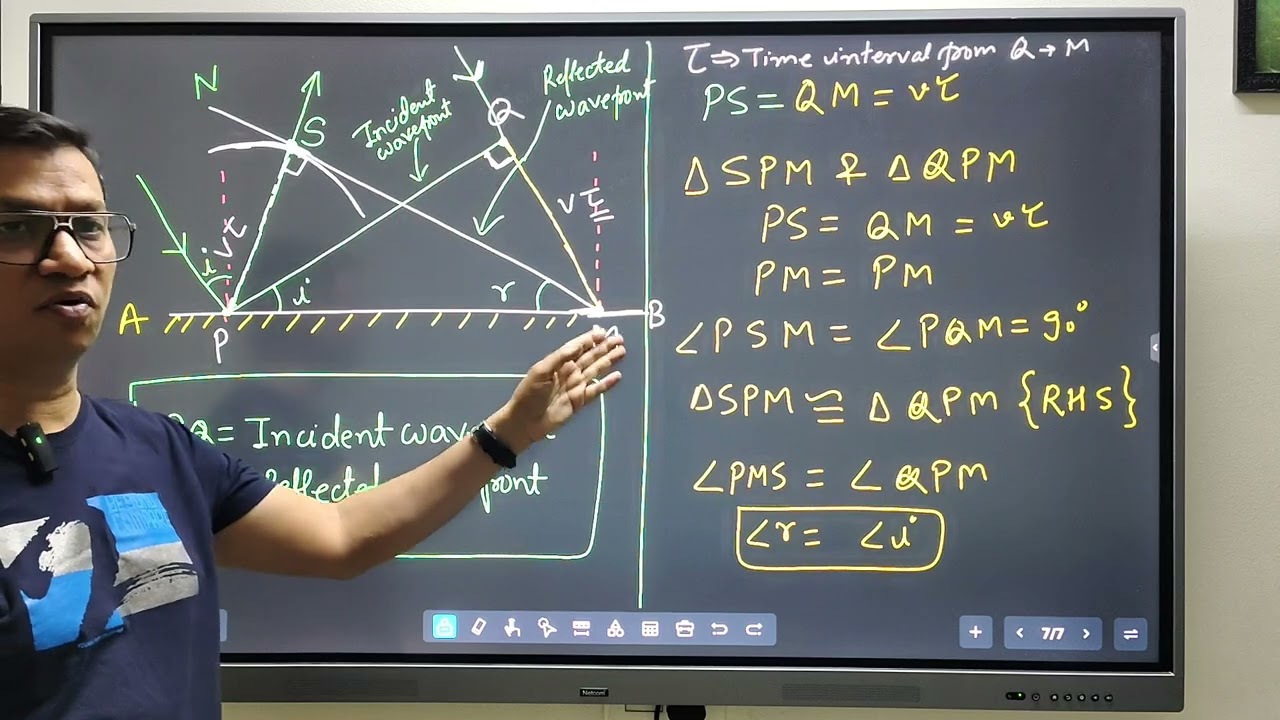 N
S
Incident
wavefront
Q
Reflected
wavefront
vτ
vτ
i
i
r
A
P
B
= Incident
Reflected
τ ⇒ Time interval from Q → M
PS = QM = vτ
Δ SPM & Δ QPM
PS = QM = vτ
PM = PM
∠PSM = ∠PQM = 90°
ΔSPM ≅ Δ QPM {RHS}
∠PMS = ∠QPM
∠r = ∠i
7/7
Netcom